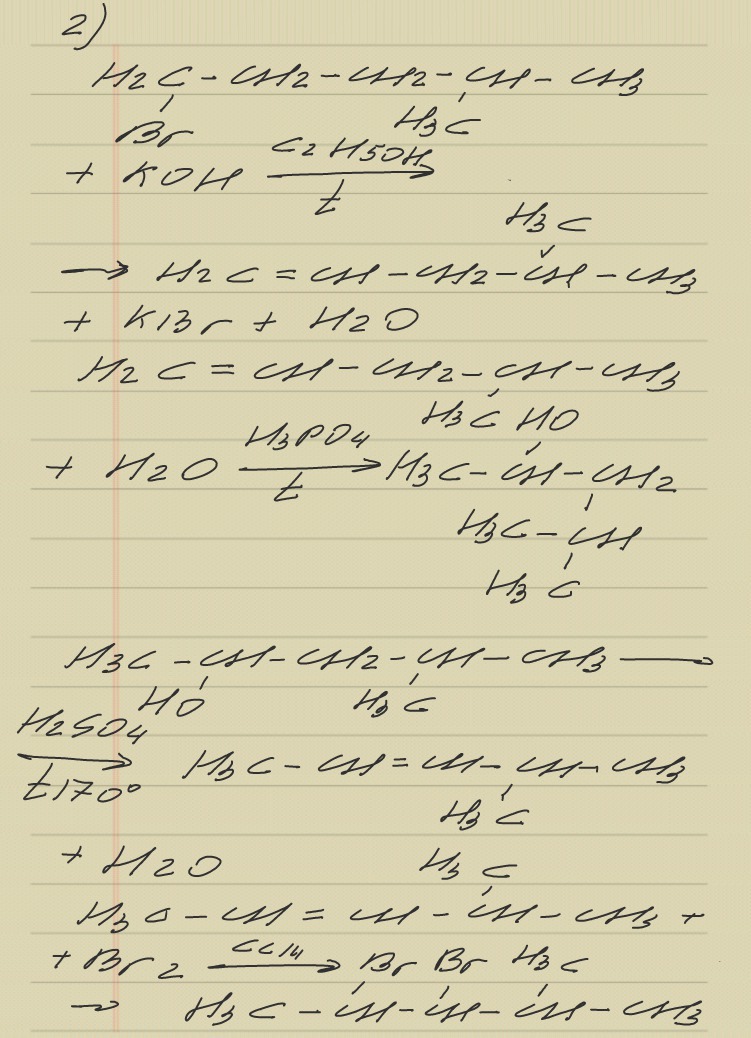 2)
H2C - CH2 - CH2 - CH - CH3
Br H3C
+ KOH C2H5OH
t
H3C
→ H2C = CH - CH2 - CH - CH3
+ KBr + H2O
H2C = CH - CH2 - CH - CH3
H3C HO
+ H2O H3PO4 → H3C - CH - CH2
t
H3C - CH
H3C
H3C - CH - CH2 - CH - CH3 →
HO H3C
H2SO4
→ H3C - CH = CH - CH - CH3
t170°
H3C
+ H2O H3C
H3C - CH = CH - CH - CH3 +
+ Br2 CCl4 → Br Br H3C
→ H3C - CH - CH - CH - CH3